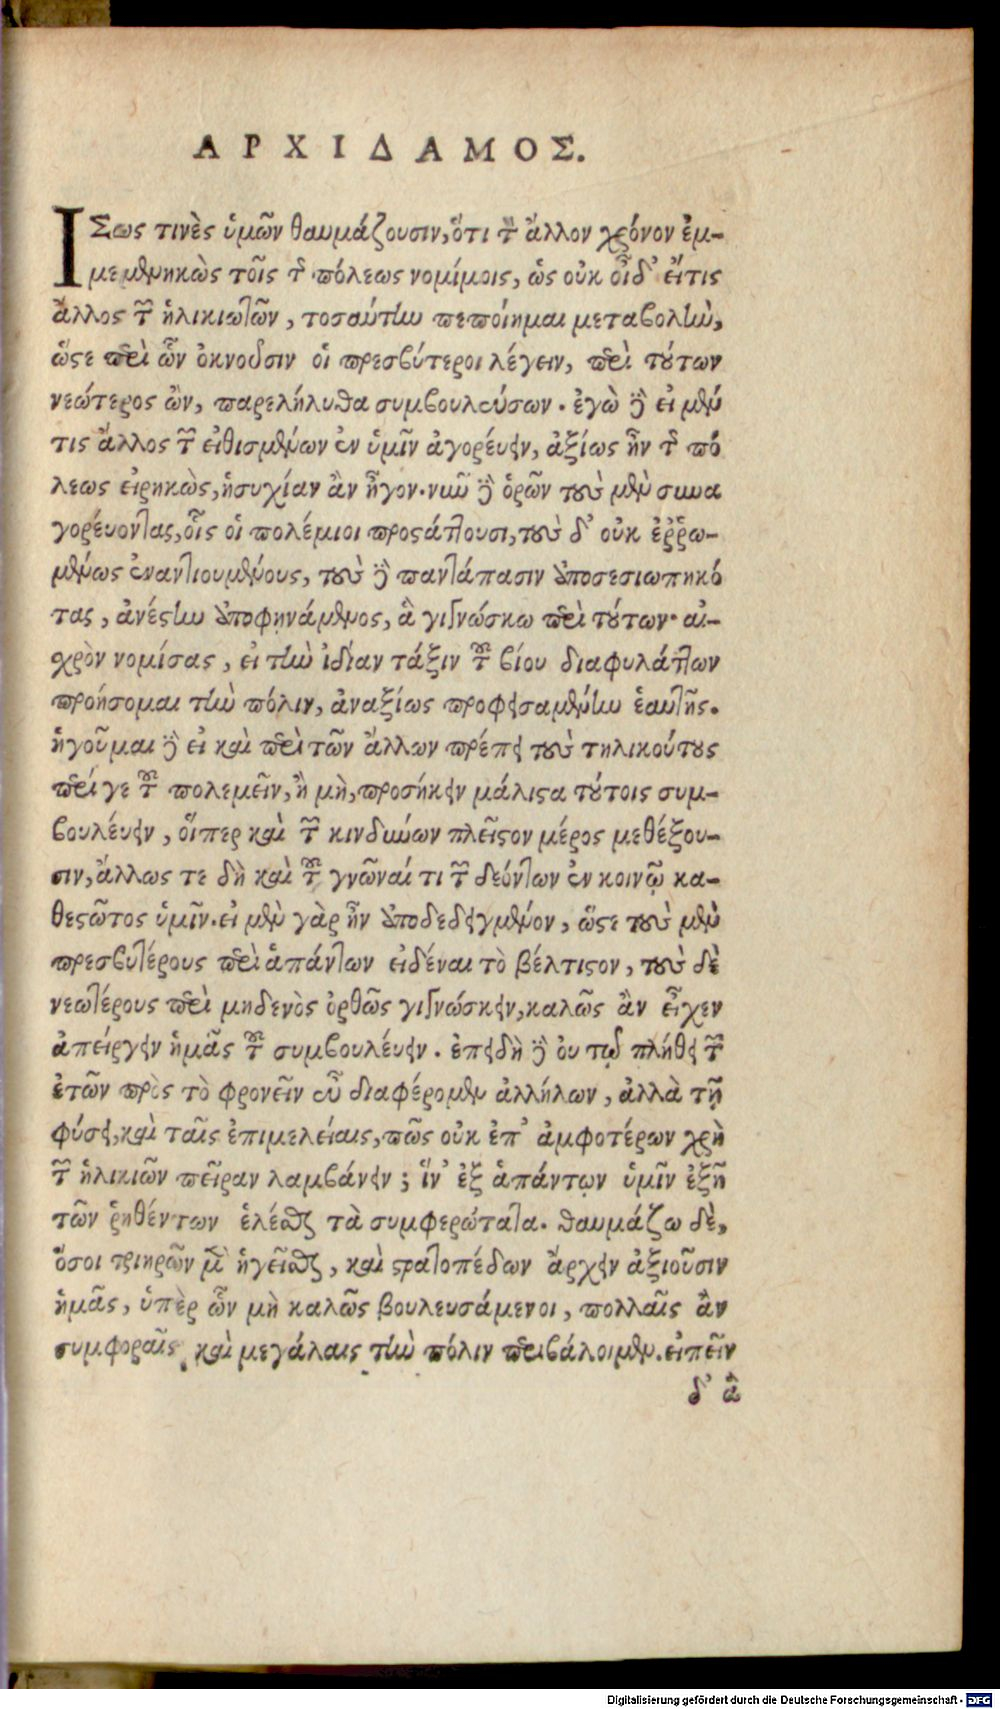 ΑΡΧΙΔΑΜΟΣ.
ΙΣως τινὲς ὑμῶν θαυμάζουσιν, ὅτι τὸν ἄλλον χρόνον ἐμ-
μεμενηκὼς τοῖς τῆς πόλεως νομίμοις, ὡς οὐκ οἶδ' εἴτις
ἄλλος τῶν ἡλικιωτῶν, τοσαύτην πεποίημαι μεταβολὴν,
ὥστε περὶ ὧν ὀκνοῦσιν οἱ πρεσβύτεροι λέγειν, περὶ τούτων
νεώτερος ὢν, παρελήλυθα συμβουλεύσων. ἐγὼ δὲ εἰ μέν
τις ἄλλος τῶν εἰθισμένων ἐν ὑμῖν ἀγορεύειν, ἀξίως ἦν τῆς πό
λεως εἰρηκὼς, ἡσυχίαν ἂν ἦγον. νῦν δὲ ὁρῶν τοὺς μὲν συνα
γορεύοντας, οἷς οἱ πολέμιοι προσάττουσι, τοὺς δ' οὐκ ἐῤῥω-
μένως ἐναντιουμένους, τοὺς δὲ παντάπασιν ἀποσεσιωπηκό
τας, ἀνέστην ἀποφηνάμενος, ἃ γιγνώσκω περὶ τούτων· αἰ-
χρὸν νομίσας, εἰ τὴν ἰδίαν τάξιν τοῦ βίου διαφυλάττων
προήσομαι τὴν πόλιν, ἀναξίως προφεισαμένην ἑαυτῆς.
ἡγοῦμαι δὲ εἰ καὶ περὶ τῶν ἄλλων πρέπει τοὺς τηλικούτους
περί γε τοῦ πολεμεῖν, ἢ μὴ, προσήκειν μάλιστα τούτοις συμ-
βουλεύειν, οἵπερ καὶ τῶν κινδύνων πλεῖστον μέρος μεθέξου-
σιν, ἄλλως τε δὴ καὶ τοῦ γνῶναί τι τῶν δεόντων ἐν κοινῷ κα-
θεστῶτος ὑμῖν. εἰ μὲν γὰρ ἦν ἀποδεδειγμένον, ὥστε τοὺς μὲν
πρεσβυτέρους περὶ ἁπάντων εἰδέναι τὸ βέλτιστον, τοὺς δὲ
νεωτέρους περὶ μηδενὸς ὀρθῶς γιγνώσκειν, καλῶς ἂν εἶχεν
ἀπείργειν ἡμᾶς τοῦ συμβουλεύειν. ἐπειδὴ δὲ οὐ τῷ πλήθει τῶν
ἐτῶν πρὸς τὸ φρονεῖν εὖ διαφέρομεν ἀλλήλων, ἀλλὰ τῇ
φύσει, καὶ ταῖς ἐπιμελείαις, πῶς οὐκ ἐπ' ἀμφοτέρων χρὴ
τῶν ἡλικιῶν πεῖραν λαμβάνειν; ἵν' ἐξ ἁπάντων ὑμῖν ἐξῇ
τῶν ῥηθέντων ἑλέσθαι τὰ συμφερώτατα. θαυμάζω δὲ,
ὅσοι τριηρῶν μὲν ἡγεῖσθαι, καὶ στρατοπέδων ἄρχειν ἀξιοῦσιν
ἡμᾶς, ὑπὲρ ὧν μὴ καλῶς βουλευσάμενοι, πολλαῖς ἂν
συμφοραῖς καὶ μεγάλαις τὴν πόλιν περιβάλοιμεν. εἰπεῖν
δ' ἃ
Digitalisierung gefördert durch die Deutsche Forschungsgemeinschaft - DFG